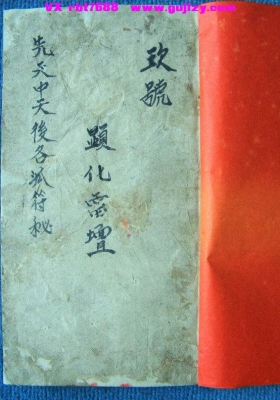 VX-rbt7688 www.gujizy.com
玖號
顯化雷壇
先天中天後各派符秘